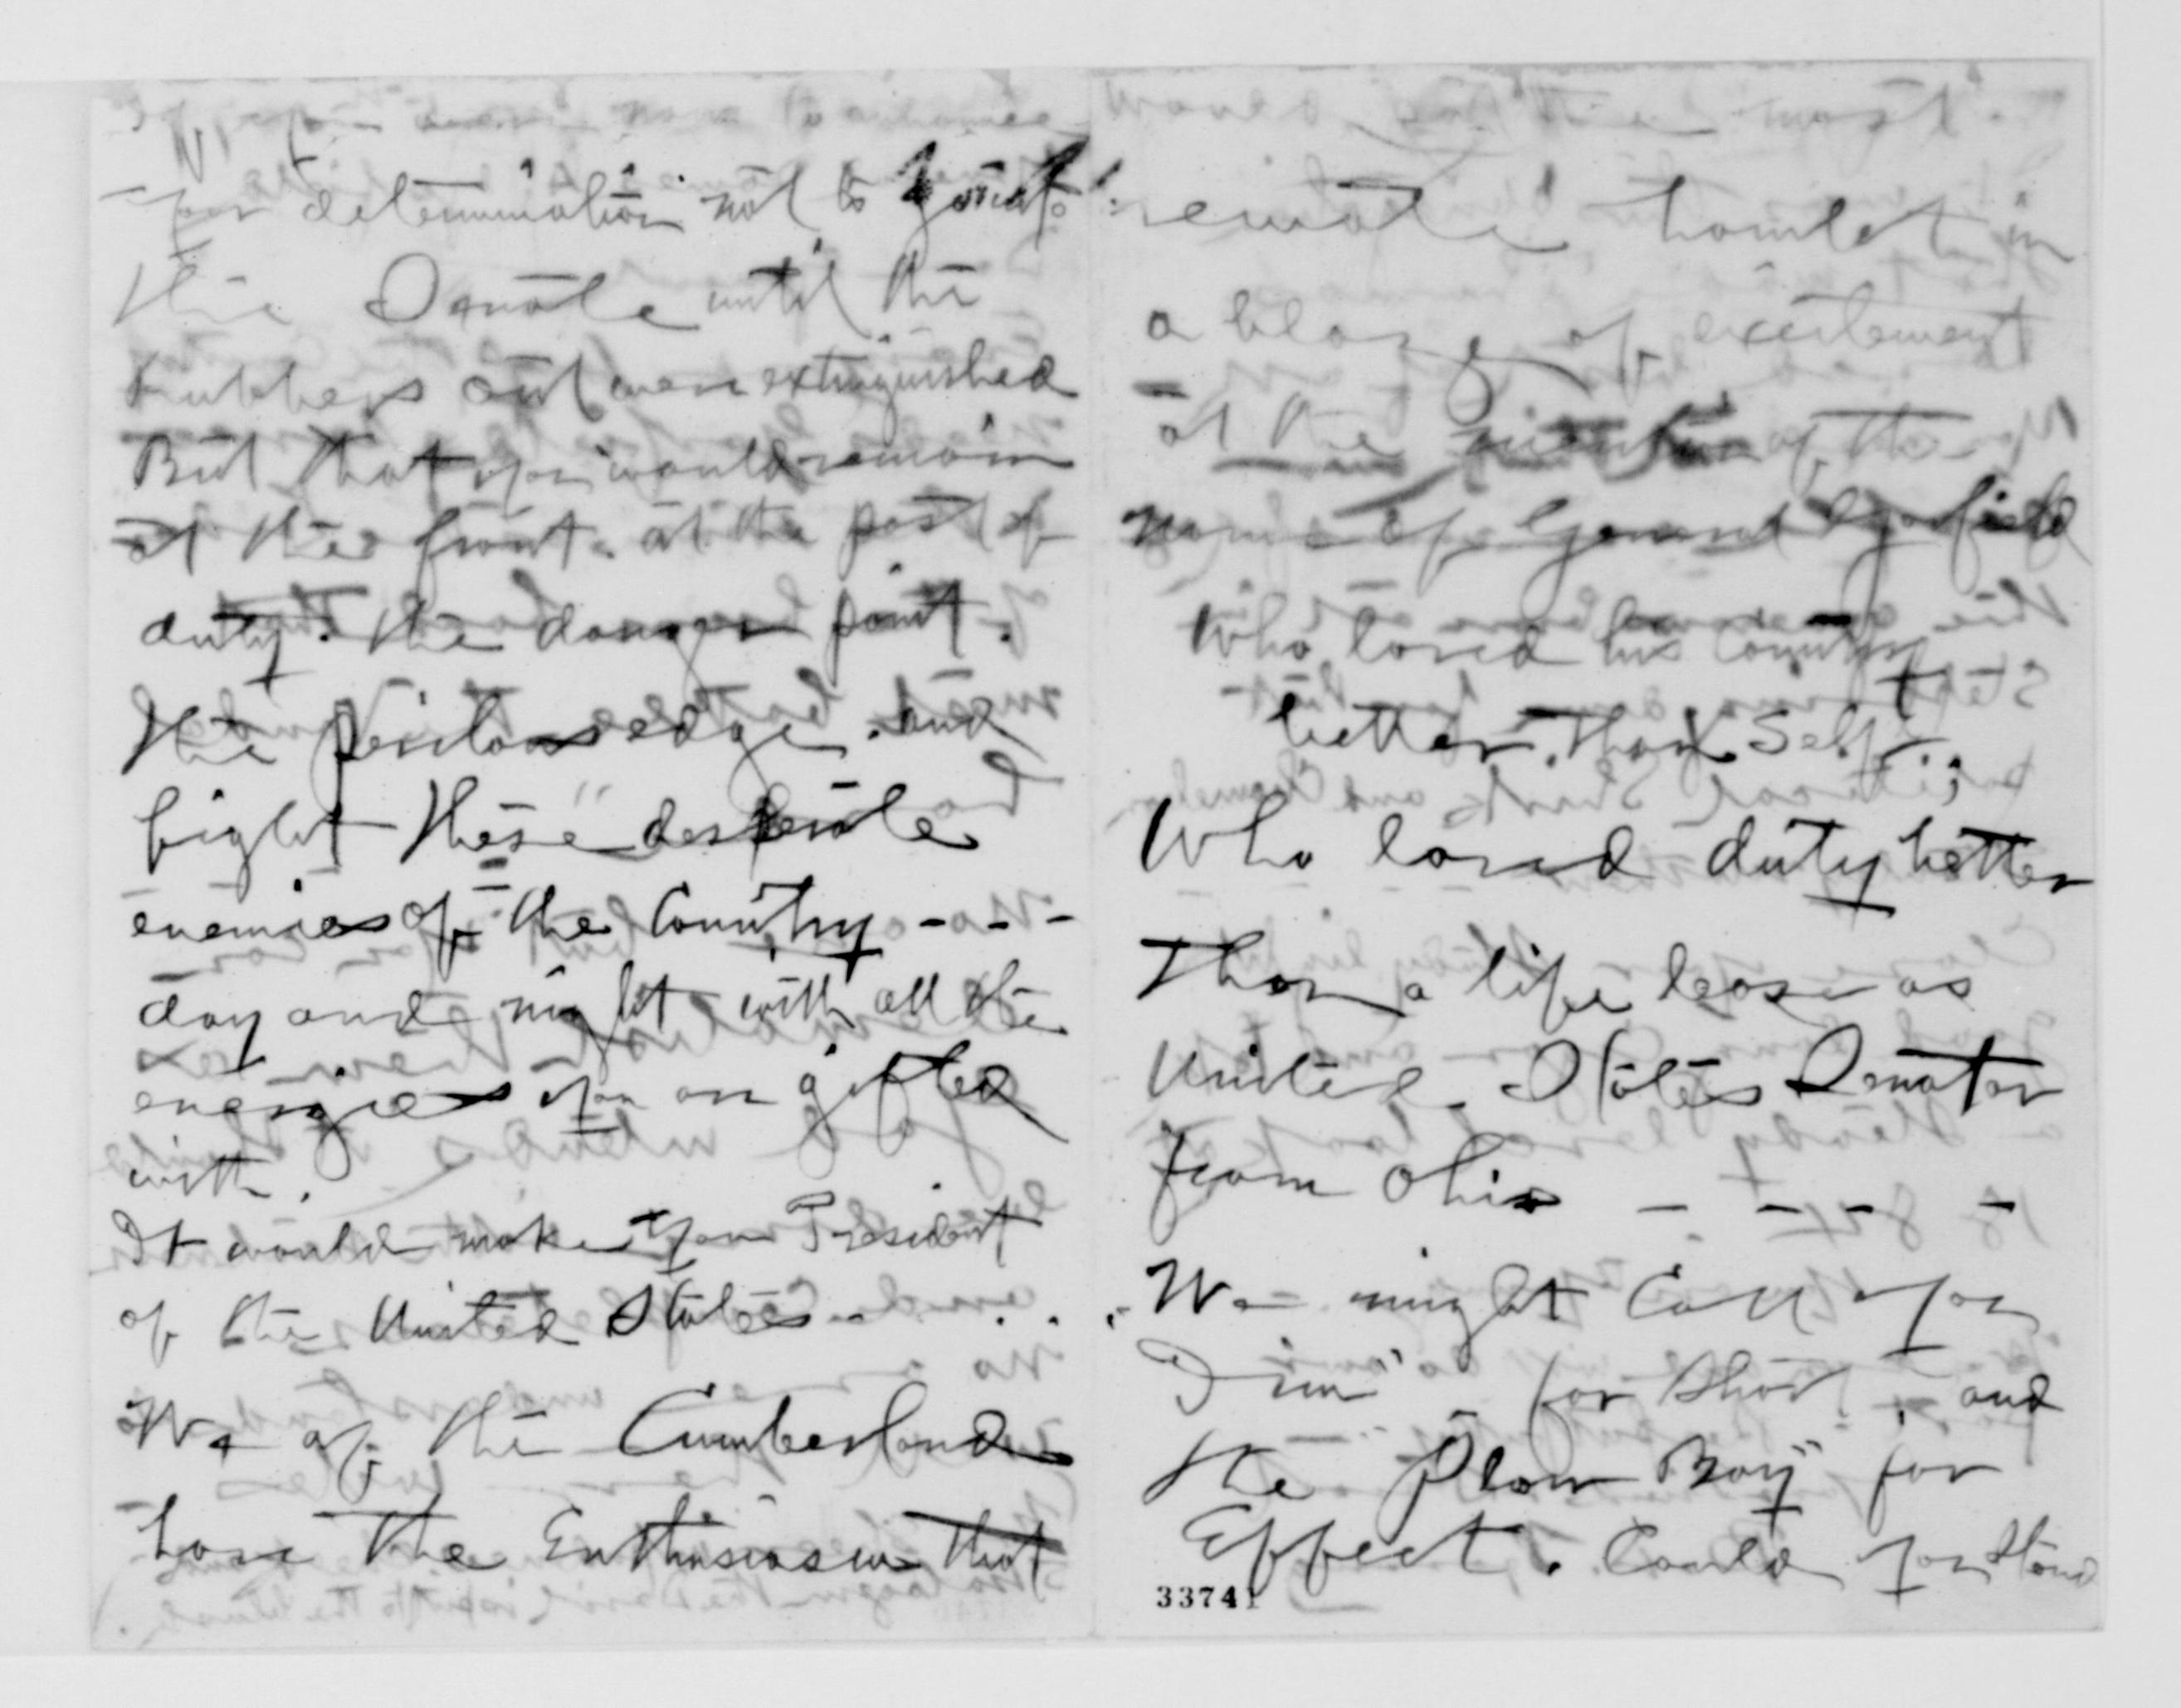 your determination not to go into
the Senate until the
were extinguished
But that you would remain
at the front. at the post of
duty. the danger point.
the perilous edge. and
fight these desperate
enemies of the Country - - -
day and night with all the
energies you are gifted
with.
It would make you President
of the United States - . . .
We of the Cumberland
have the Enthusiasm that
remote hamlet in
a blaze of excitement
at the mention of the
name of General Garfield
Who loved his Country
better. than Self. ;
Who loved duty better
than a life lease as
United States Senator
from Ohio - - - -
We might Call you
"Jim" for Short, and
the "Plow Boy" for
Effect. Could you stand
33741